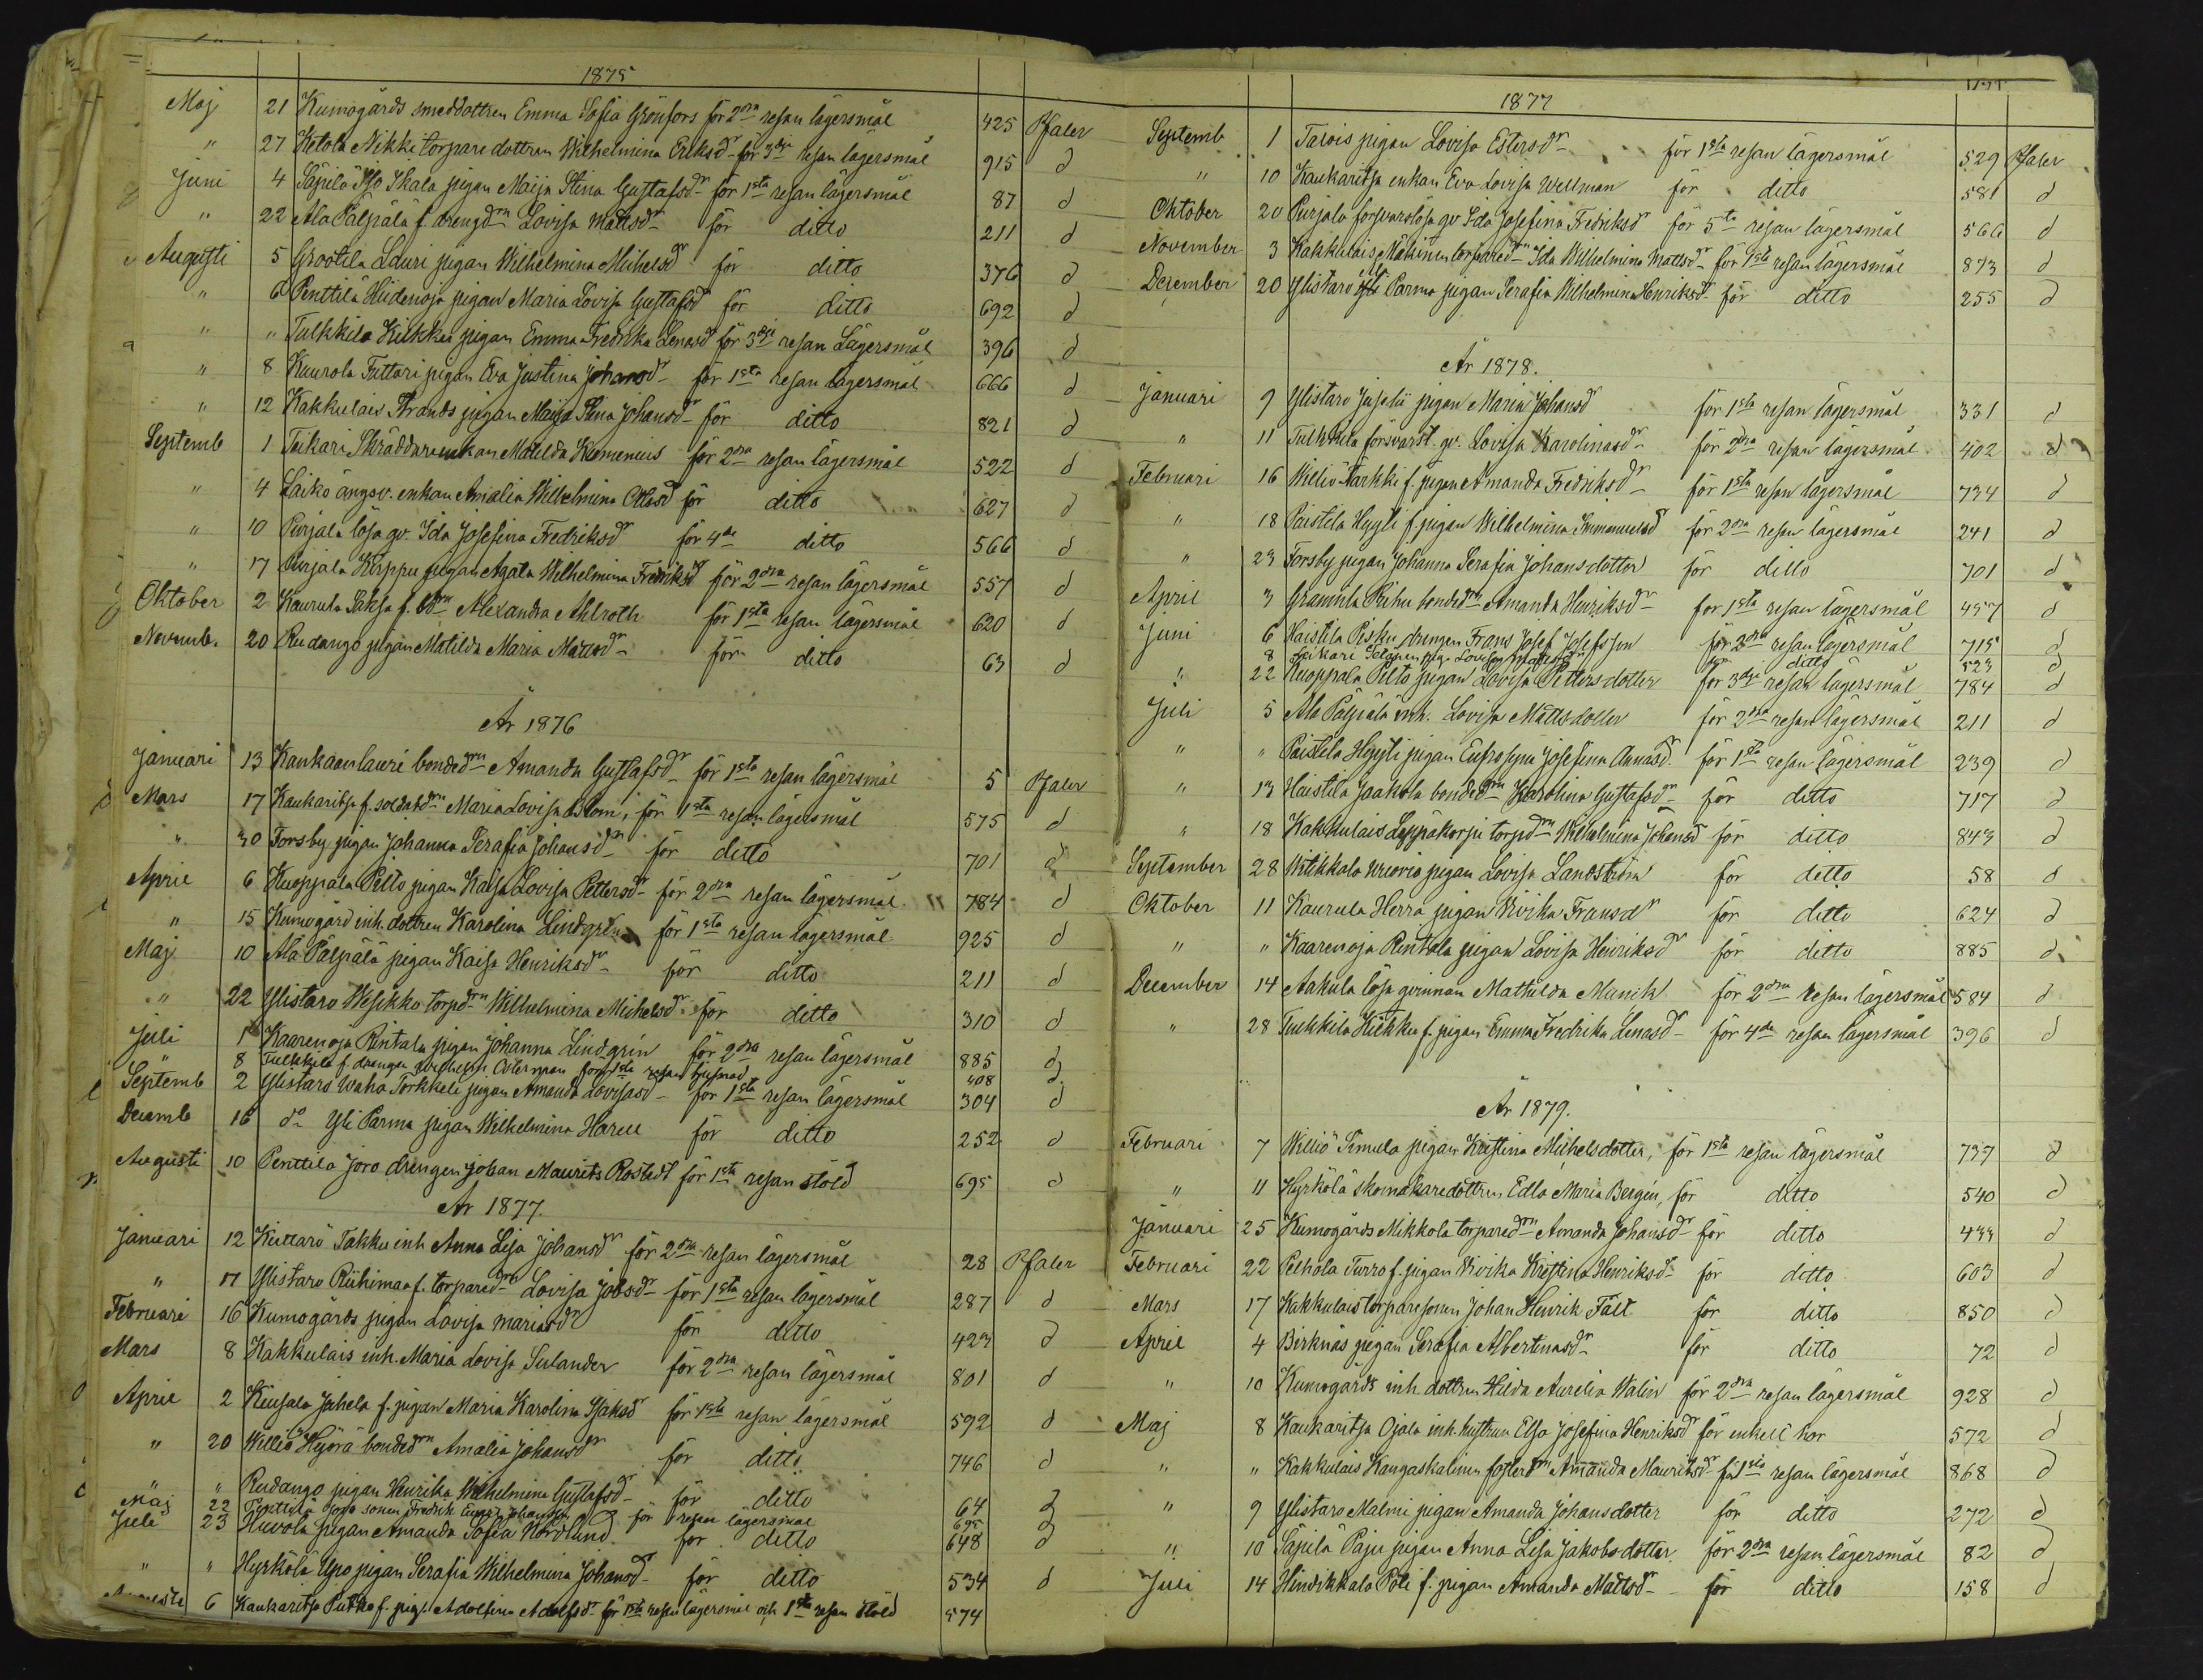 1875
Maj 21 Kumogårds smeddottren Emma Sofia Grönfors för 2dra resan lägersmål 425 Pfaler
" 27 Ketola Nikki torpare dottren Wilhelmina Eriksdr för 3dje resan lägersmål 915 d
Juni 4 Säpilä Iso Skala pigan Maija Stina Gustafsdr för 1sta resan lägersmål 87 d
" 22 Ala Pälpälä f. drengdrn Lovisa Mattsdr för ditto 211 d
Augusti 5 Grootila Lauri pigan Wilhelmina Mihelsdr för ditto 376 d
" 6 Penttilä Hiidenoja pigan Maria Lovisa Gustafsdr för ditto 692 d
" " Tulkkila Kiikka pigan Emma Fredrika Lenasdr för 3dje resan Lägersmål 396 d
" 8 Kaurola Futtari pigan Eva Justina Johansdr för 1sta resan lägersmål 666 d
" 12 Kakkulais Strands pigan Maija Stina Johansdr för ditto 821 d
Septemb 1 Tuikari Skräddareenkan Matilda Kumenius för 2dra resan lägersmål 522 d
" 4 Laiko ängsv. enkan Amalia Wilhelmina Ottasdr för ditto 627 d
" 10 Purjala lösa qv. Ida Josefina Fredriksdr för 4de ditto 566 d
" 17 Purjala Körppu pigan Agata Wilhelmina Fredriksdr för 2dra resan lägersmål 557 d
Oktober 2 Kaurula Saksa f. bdrn Alexandra Ahlroth för 1sta resan lägersmål 620 d
Novemb. 20 Rudango pigan Matilda Maria Mattsdr för ditto 63 d
År 1876
Januari 13 Kankaanlauri bondedrn Amanda Gustafsdr för 1sta resan lägersmål 5 Pfaler
Mars 17 Kaukaritsa f. soldatdrn Maria Lovisa Blom, för 1sta resan lägersmål 575 d
" 30 Forsby pigan Johanna Serafia Johansdr för ditto 701 d
April 6 Kuoppala Pelto pigan Kaisa Lovisa Pettersdr för 2dra resan lägersmål 784 d
" 15 Kumogård inh. dottren Karolina Lindgren för 1sta resan lägersmål 925 d
Maj 10 Ala Pälpälä pigan Kaisa Henriksdr för ditto 211 d
" 22 Ylistaro Wesikko torpdrn Wilhelmina Michelsdr för ditto 310 d
Juli 1 Kaarenoja Rintala pigan Johanna Lindgrén för 2dra resan lägersmål 885 d
" 8 Tulkkila f. drengen Wilhelm Österman för 1sta resan 408 d
Septemb 2 Ylistaro Waha Torkkeli pigan Amanda Lovisasdr för 1sta resan lägersmål 304 d
Decemb 16 do Yli Parma pigan Wilhelmina Harell för ditto 252 d
Augusti 10 Penttilä Joro drengen Johan Maurits Rostedt för 1sta resan stöld 695 d
År 1877.
Januari 12 Kuttarö Takku inh Anna Lisa Johansdr för 2dra resan lägersmål 28 Pfaler
" 17 Ylistaro Riihimaa f. torparedrn Lovisa Jobsdr för 1sta resan lägersmål 287 d
Februari 16 Kumogårds pigan Lovisa Mariasdr för ditto 423 d
Mars 8 Kakkulais inh. Maria Lovisa Sulander för 2dra resan lägersmål 801 d
April 2 Kiusala Juhela f. pigan Maria Karolina Isaksdr för 1sta resan lägersmål 592 d
" 20 Williö Hyörä bondedrn Amalia Johansdr för ditto 746 d
" " Rudango pigan Henrika Wilhelmina Gustafsdr för ditto 64 d
Maj 22 Penttilä Joro sonen Fredrik Emil Johansson för resan lägersmål 695 d
Juli 23 Huvola pigan Amanda Sofia Nordlund för ditto 648 d
" " Hyrkölä Upo pigan Serafia Wilhelmina Johansdr för ditto 534 d
Augusti 6 Kaukaritsa Putka f. pigan Adolfina Adolfsdr för 1sta resan lägersmål och 1sta resan stöld 574
1877
Septemb 1 Talois pigan Lovisa Estersdr för 1sta resan lägersmål 529 Pfaler
" 10 Kaukaritsa enkan Eva Lovisa Wellman för ditto 581 d
Oktober 20 Purjala försvarslösa qv Ida Josefina Fredriksdr för 5te resan lägersmål 566 d
November 3 Kakkulais Mäkinen torparedrn Ida Wilhelmina Mattsdr för 1sta resan lägersmål 873 d
December 20 Ylistaro Yli Parma pigan Serafia Wilhelmina Henriksdr för ditto 255 d
År 1878.
Januari 9 Ylistaro Juselii pigan Maria Johansdr för 1sta resan lägersmål 331 d
" 11 Tulkkila försvarsl. qv. Lovisa Karolinasdr för 2dra resan lägersmål 402 d
Februari 16 Williö Markki f. pigan Amanda Fredriksdr för 1sta resan lägersmål 734 d
" 18 Paistila Hyyti f. pigan Wilhelmina Immanuelsdr för 2dra resan lägersmål 241 d
" 23 Forsby pigan Johanna Serafia Johansdotter för ditto 701 d
April 3 Gammla Pirhu bondedrn Amanda Henriksdr för 1sta resan lägersmål 457 d
Juni 6 Haistila Pisku drengen Frans Josef Josefsson för 2dra resan lägersmål 715 d
8 pigan Lovisa för ditto 523 d
" 22 Kuoppala Pelto pigan Lovisa Pettersdotter för 3dje resan lägersmål 784 d
Juli 5 Ala Pälpälä inh. Lovisa Mattsdotter för 2dra resan lägersmål 211 d
" " Paistila Hyyti pigan Eufrosyne Josefina Annasdr för 1sta resan lägersmål 239 d
" 13 Haistila Jaakola bondedrn Karolina Gustafsdr för ditto 717 d
" 18 Kakkulais Leppäkorpi torpdrn Wilhelmina Johansdr för ditto 843 d
September 28 Witikkala Wuorio pigan Lovisa Landström för ditto 58 d
Oktober 11 Kaurula Herra pigan Wivika Fransdr för ditto 624 d
" " Kaarenoja Rintala pigan Lovisa Henriksdr för ditto 885 d
December 14 Aakula lösa qvinnan Mathilda Munik för 2dra resan lägersmål 584 d
" 28 Tulkkila Kiikka f. pigan Emma Fredrika Lenasdr för 4de resan lägersmål 396 d
År 1879.
Februari 7 Williö Simula pigan Kristina Michelsdotter, för 1sta resan lägersmål 737 d
" 11 Hyrkölä skomakaredottren Edla Maria Bergén, för ditto 540 d
Januari 25 Kumogårds Mikkola torparedrn Amanda Johansdr för ditto 433 d
Februari 22 Peltola Turro f. pigan Wivika Kristina Henriksdr för ditto 603 d
Mars 17 Kakkulais torparesonen Johan Henrik Fält för ditto 850 d
April 4 Birknäs pigan Serafia Albertinasdr för ditto 72 d
" 10 Kumogårds inh. dottren Hilda Aurelia Walin för 2dra resan lägersmål 928 d
Maj 8 Kaukaritsa Ojala inh. hustrun Elsa Josefina Henriksdr för enkelt hor 572 d
" " Kakkulais Kangaskalinen fosterdrn Amanda Mauritsdr för 1sta resan lägersmål 868 d
" 9 Ylistaro Malmi pigan Amanda Johansdotter för ditto 272 d
" 10 Säpilä Paju pigan Anna Lisa Jakobsdotter för 2dra resan lägersmål 82 d
Juli 14 Hindikkala Poli f. pigan Amanda Mattsdr för ditto 158 d